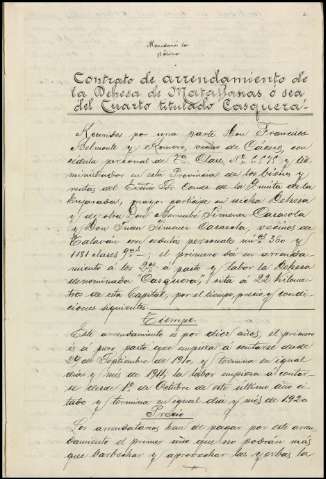 Contrato de arrendamiento de
la Dehesa de Matallanas ó sea
del Cuarto titulado Casquera.
Reunidos por una parte Don Francisco
Belmonte y Romero, vecino de Cáceres, con
cédula personal de Clase, Nº
ministrador en esta Provincia de los bienes y
rentas del Exmo Sr. Conde de la Quinta de la
Enjarada, mayor partícipe en dicha Dehesa
y de otra Don Jimenez Casasola
y Don Juan Jimenez Casasola, vecinos de
Talaván con cédulas personales y
1181 clases el primero da en arrenda-
miento á los á pasto y labor la Dehesa
denominada Casquera, sita á 22 kilóme-
tros de esta Capital, por el tiempo, precio y condi-
ciones siguientes
Tiempo
Este arrendamiento es por diez años, el primero
es á puro pasto que empieza á contarse desde
29 de Septiembre de 1910 y termina en igual
dia y mes de 1911, la labor empieza á contar-
se desde 1º de Octubre de este último año ci-
tado y termina en igual dia y mes de 1920
Precio
Los arrendatarios han de pagar por este arren-
damiento el primer año que no podrán más
que barbechar y aprovechar las yerbas la